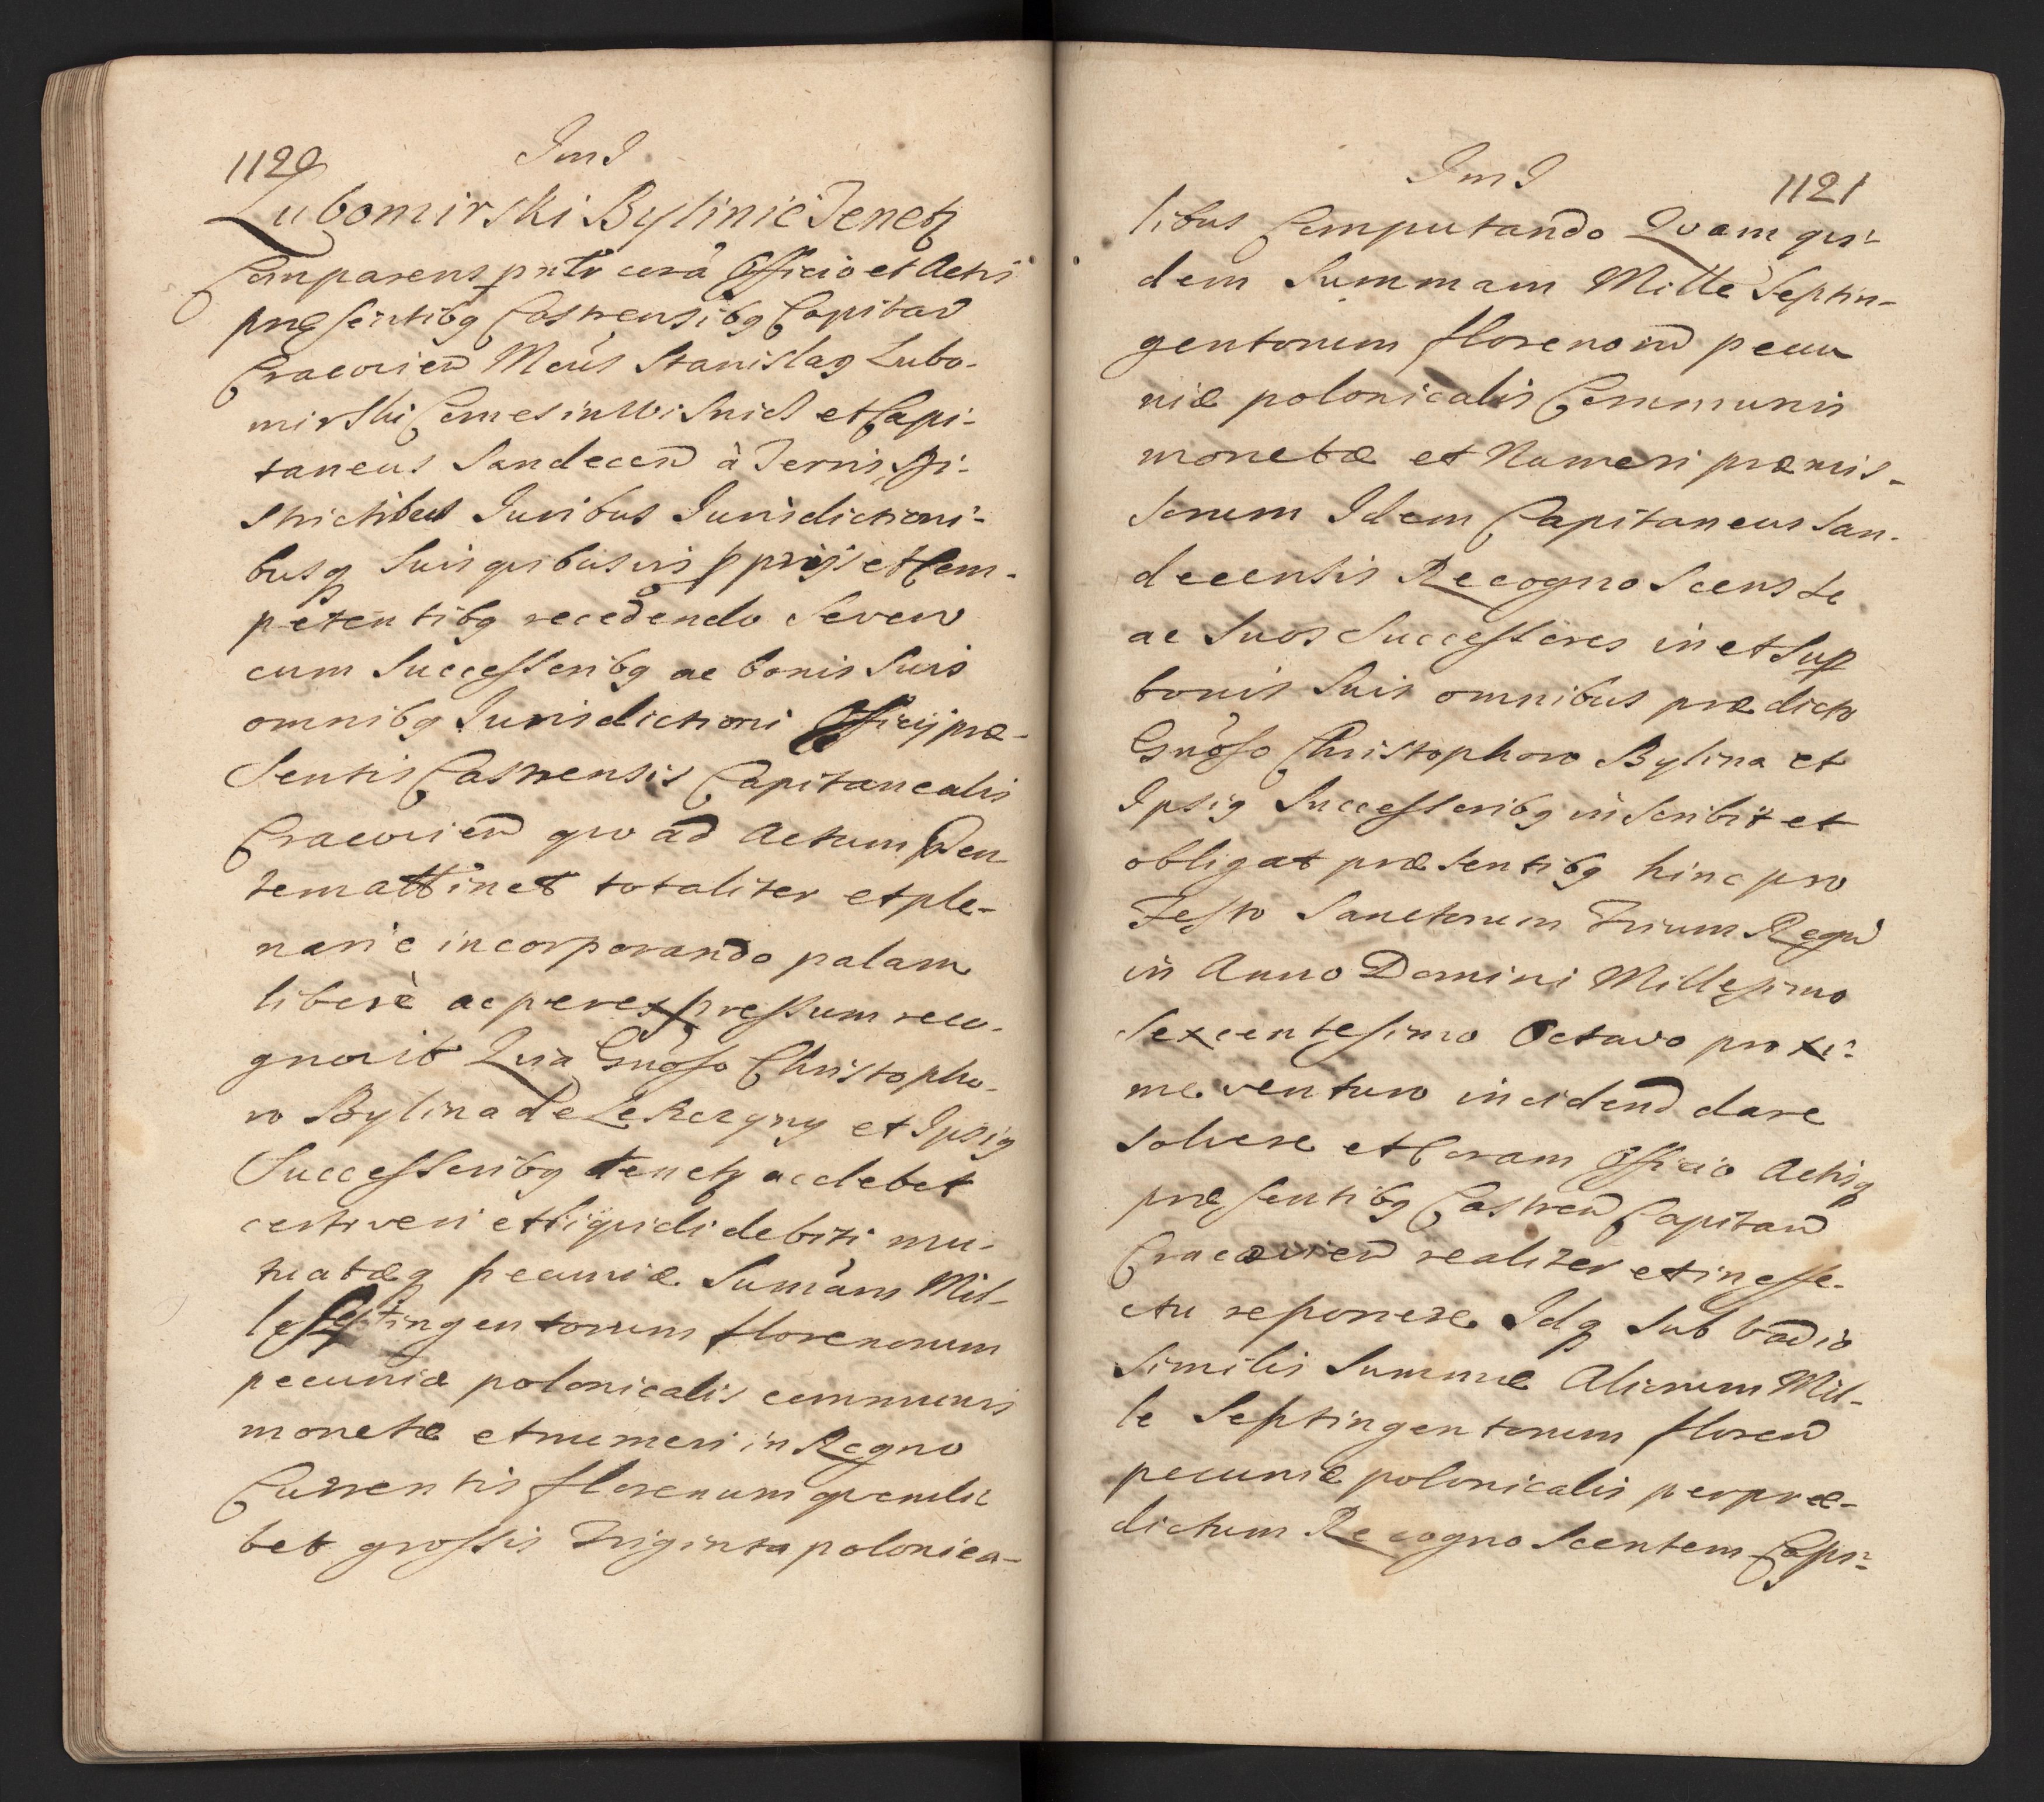 1120
Jm J
Lubomirski Bylinie Tenetꝫ
Comparens pnꞇr corā Officio et Actis
præsentibꝫ Castrensibꝫ Capitan̄
Cracovien̄ Mcus Stanislaꝫ Lubo-
mirski Comes in Wisnicz et Capi-
taneus Sandecen̄ à Terris, Di-
strictibus Iuribus Iurisdictioni-
busqꝫ Suis quibusvis ꝓprijs et Com-
petentibꝫ recedendo Seseꝙ
cum Successoribꝫ ac bonis Suis
omnibꝫ Iurisdictioni Officij præ-
sentis Castrensis Capitanealis
Cracovien̄ quo ad Actum Præn
tem attinet totaliter et ple-
narie incorporando palam
liberè ac per expressum reco-
gnovit Quia Gnoso Christopho-
ro Bylina de Leszczyny et Ipsiꝫ
Successoribꝫ tenetꝫ ac debet
certi veri et liquidi debiti mu-
tuatæqꝫ pecuniæ Sum̄am Mil-
le Septingentorum florenorum
pecuniæ polonicalis communis
monetæ et numeri in Regno
Currentis florenum quemli
bet grossis Triginta polonica-
Jm J
1121
libus Computando Quam qui-
dem Summam Mille Septin-
gentorum florenorū pecu
niæ polonicalis Communis
monetæ et Numeri præmis-
sorum Idem Capitaneus San-
decensis Recognoscens se
ac Suos Successores in et Suꝑ
bonis Suis omnibus prædicto
Gnoso Christophoro Bylina et
Ipsiꝫ Successoribꝫ inscribit et
obligat præsentibꝫ hinc pro
Festo Sanctorum Trium Regū
in Anno Domini Millesimo
Sexcentesimo Octavo proxi-
me venturo inciden̄ dare
solvere et Coram Officio Actisqꝫ
præsentibꝫ Castren̄ Capitan̄
Cracovien̄ realiter et in effe-
ctu reponere Idqꝫ Sub vadio
Similis Summæ Aliorum Mil-
le Septingentorum floren̄
pecuniæ polonicalis per præ-
dictum Recognoscentem Capi-